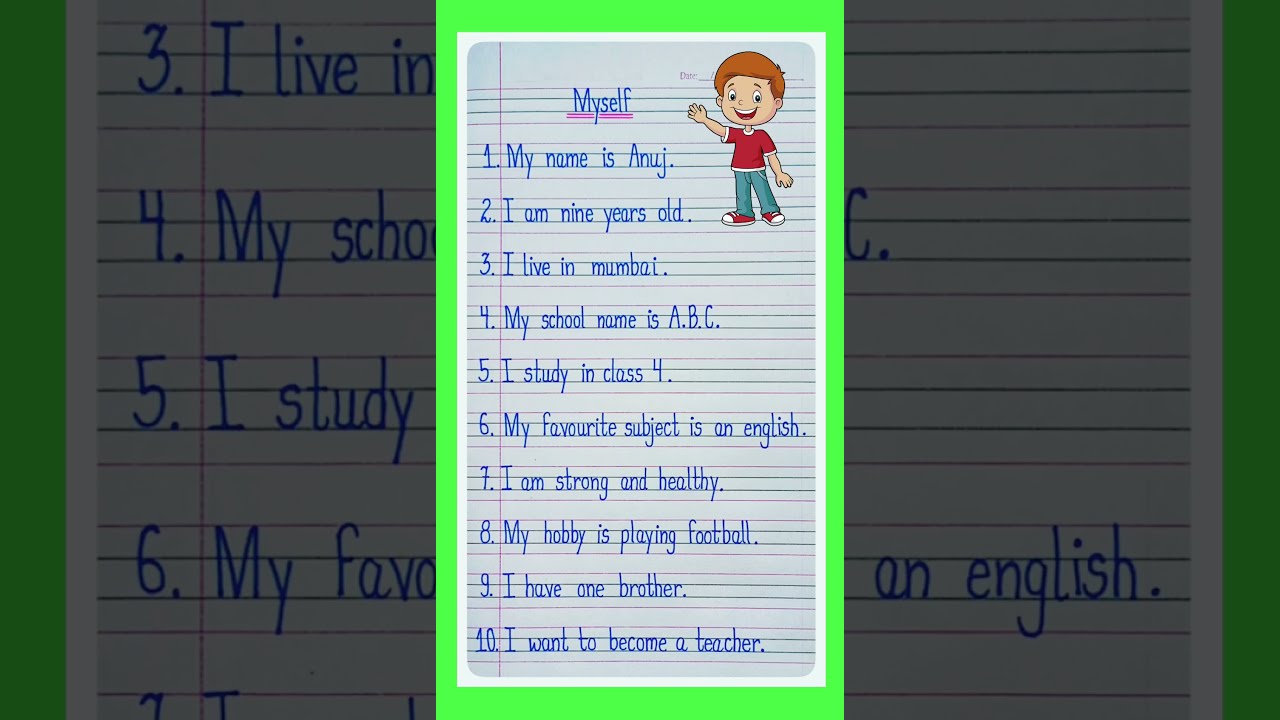 Date:
Myself
1. My name is Anuj.
2. I am nine years old.
3. I live in mumbai.
4. My school name is A.B.C.
5. I study in class 4.
6. My favourite subject is an english.
7. I am strong and healthy.
8. My hobby is playing football.
9. I have one brother.
10. I want to become a teacher.
3. I live in
4. My schoo
C.
5. I study
6. My favo
an english.
7. I